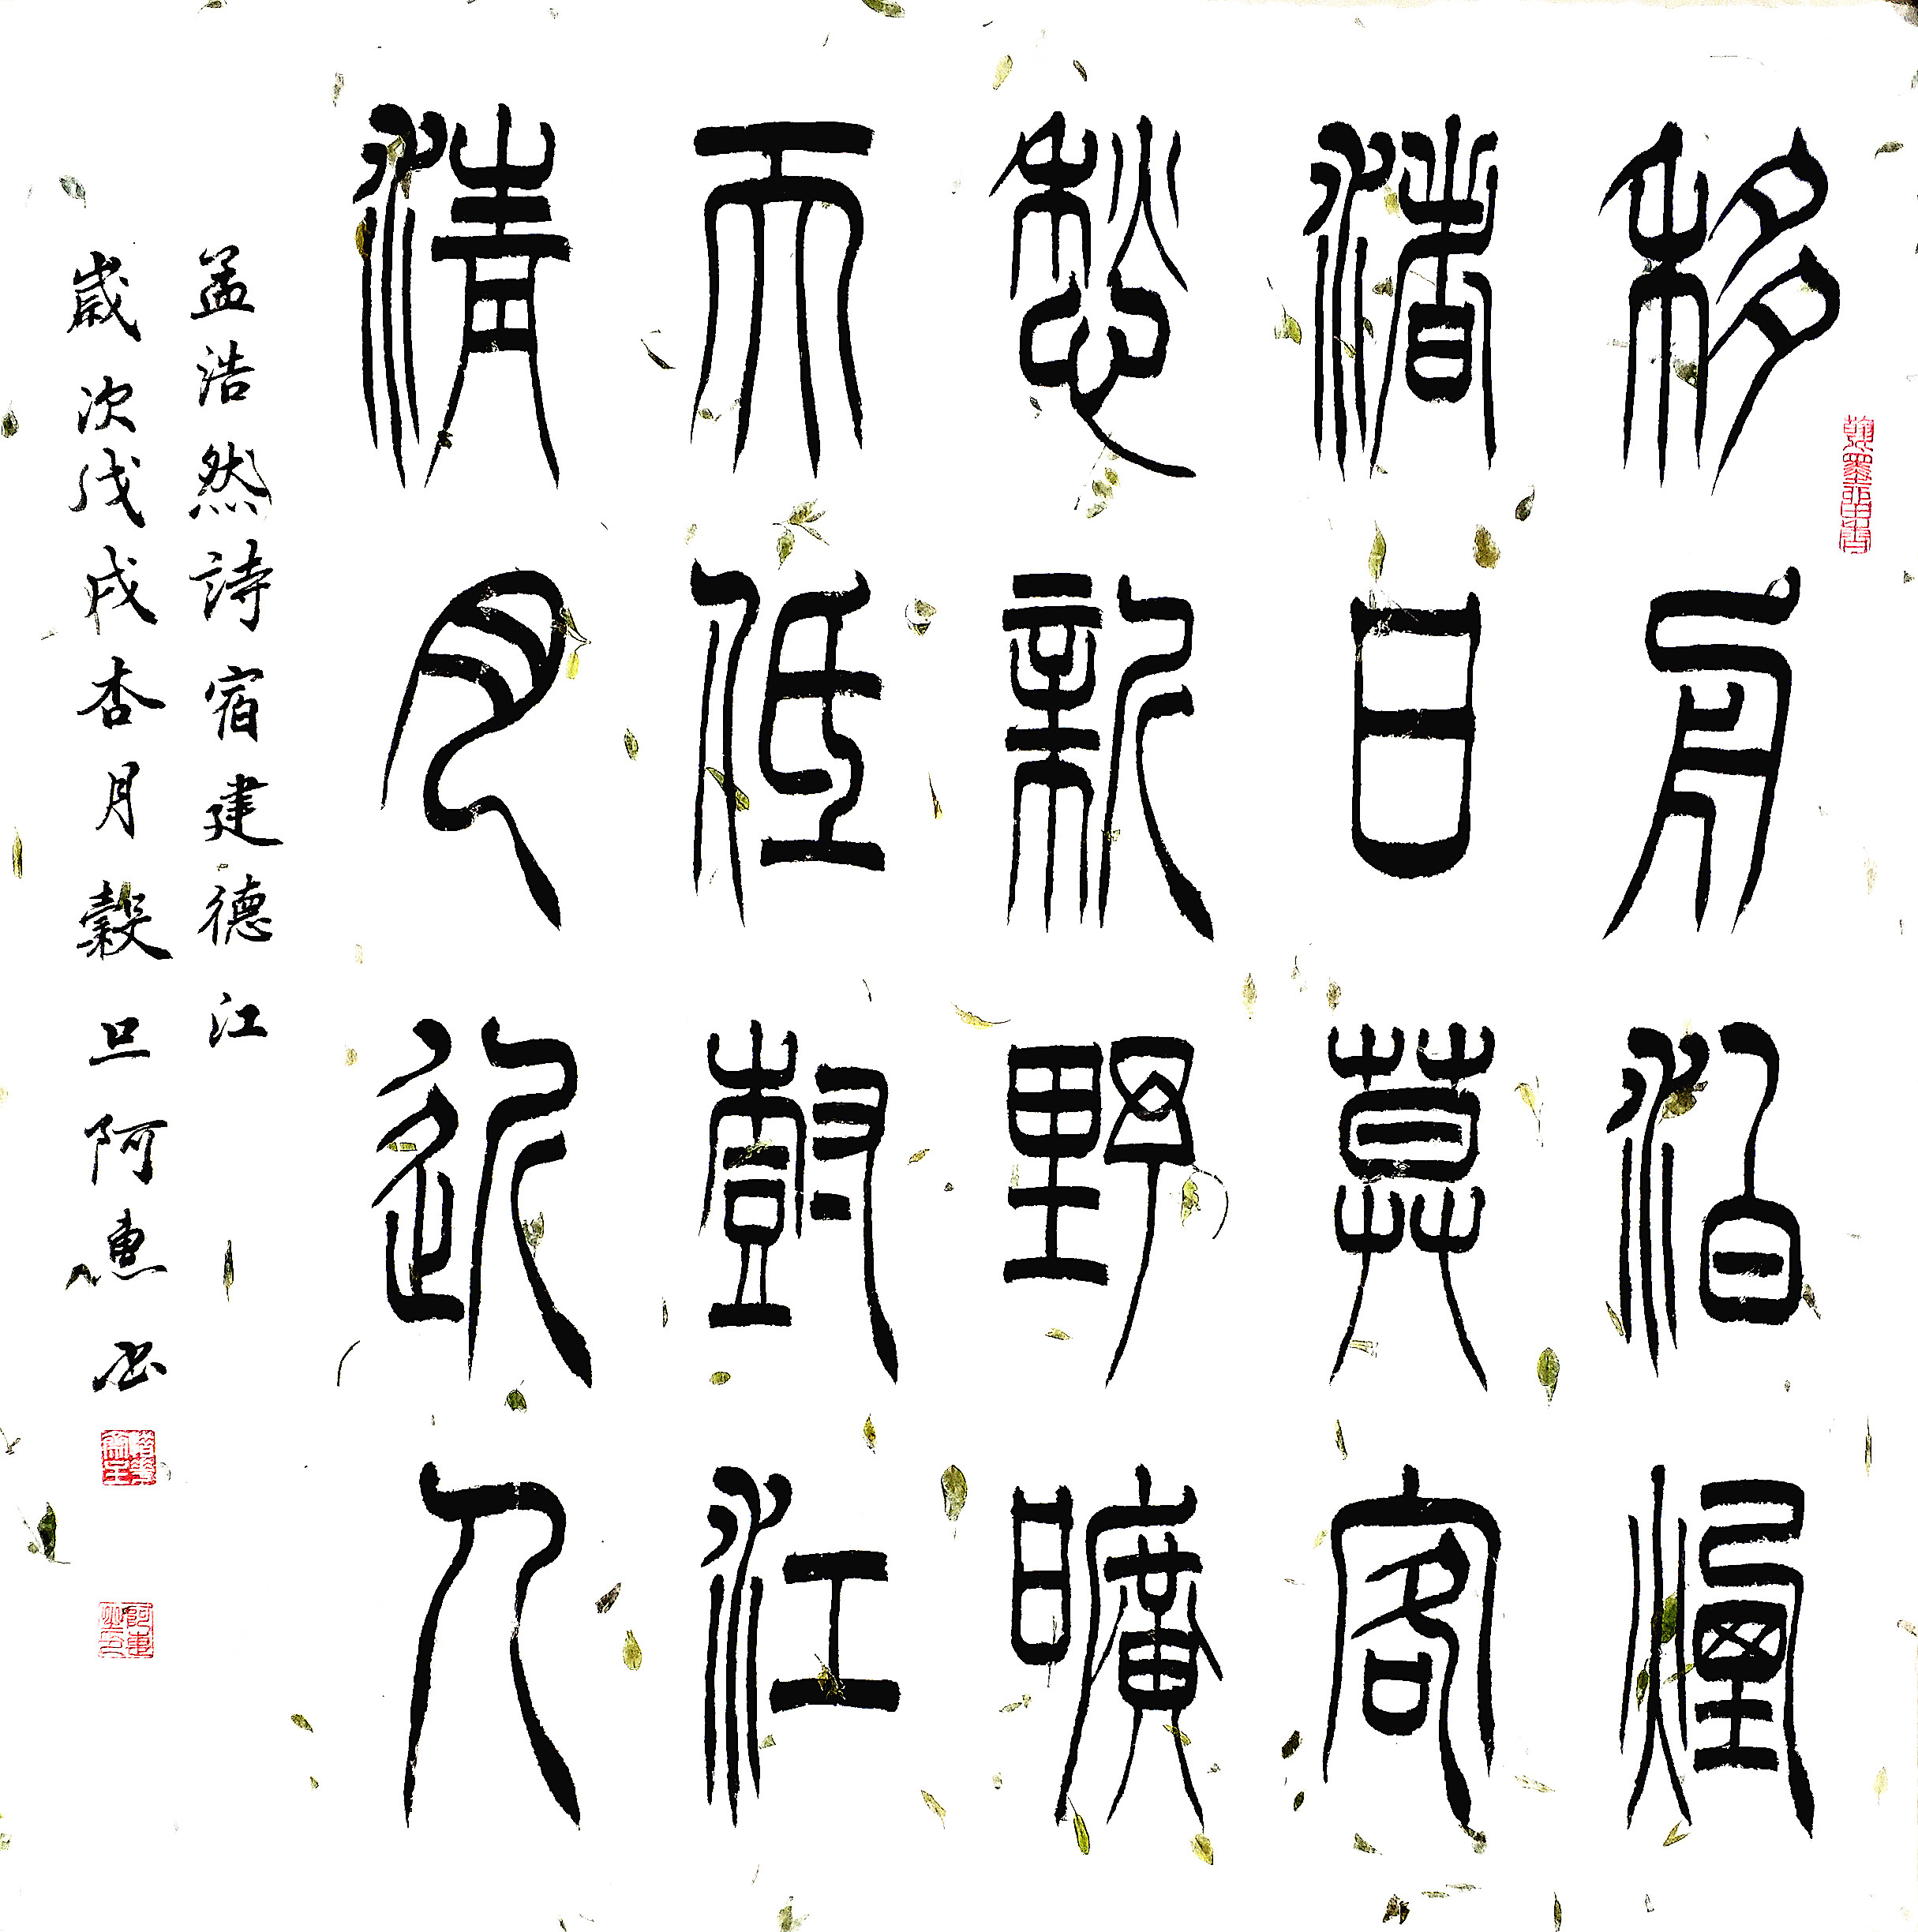 移舟泊煙
渚日莫客
愁新野曠
天低樹江
清月近人
孟浩然詩宿建德江
歲次戊戌杏月穀旦阿惠书